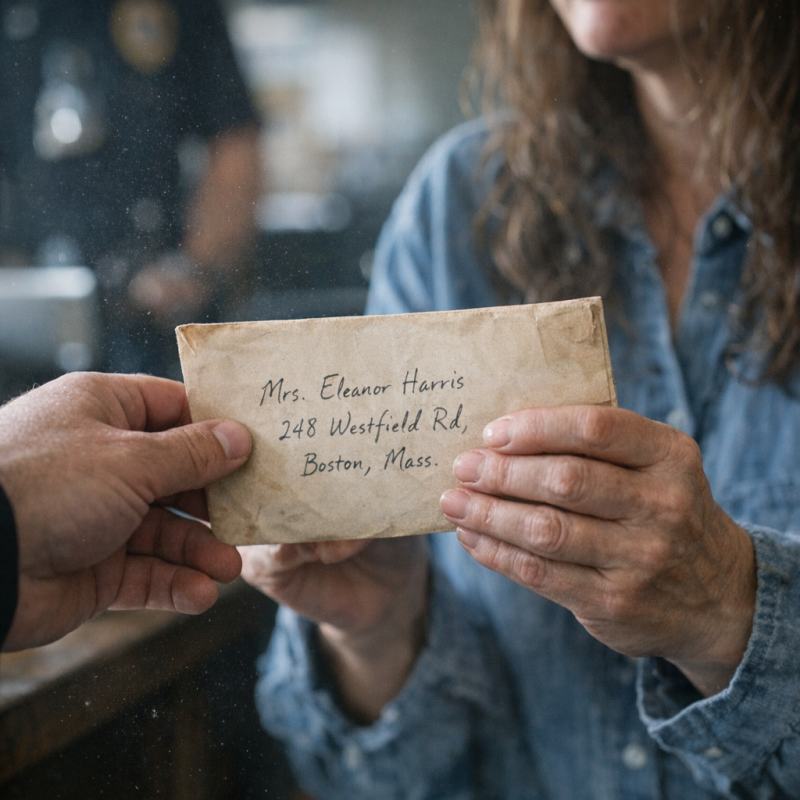 Mrs. Eleanor Harris
248 Westfield Rd,
Boston, Mass.